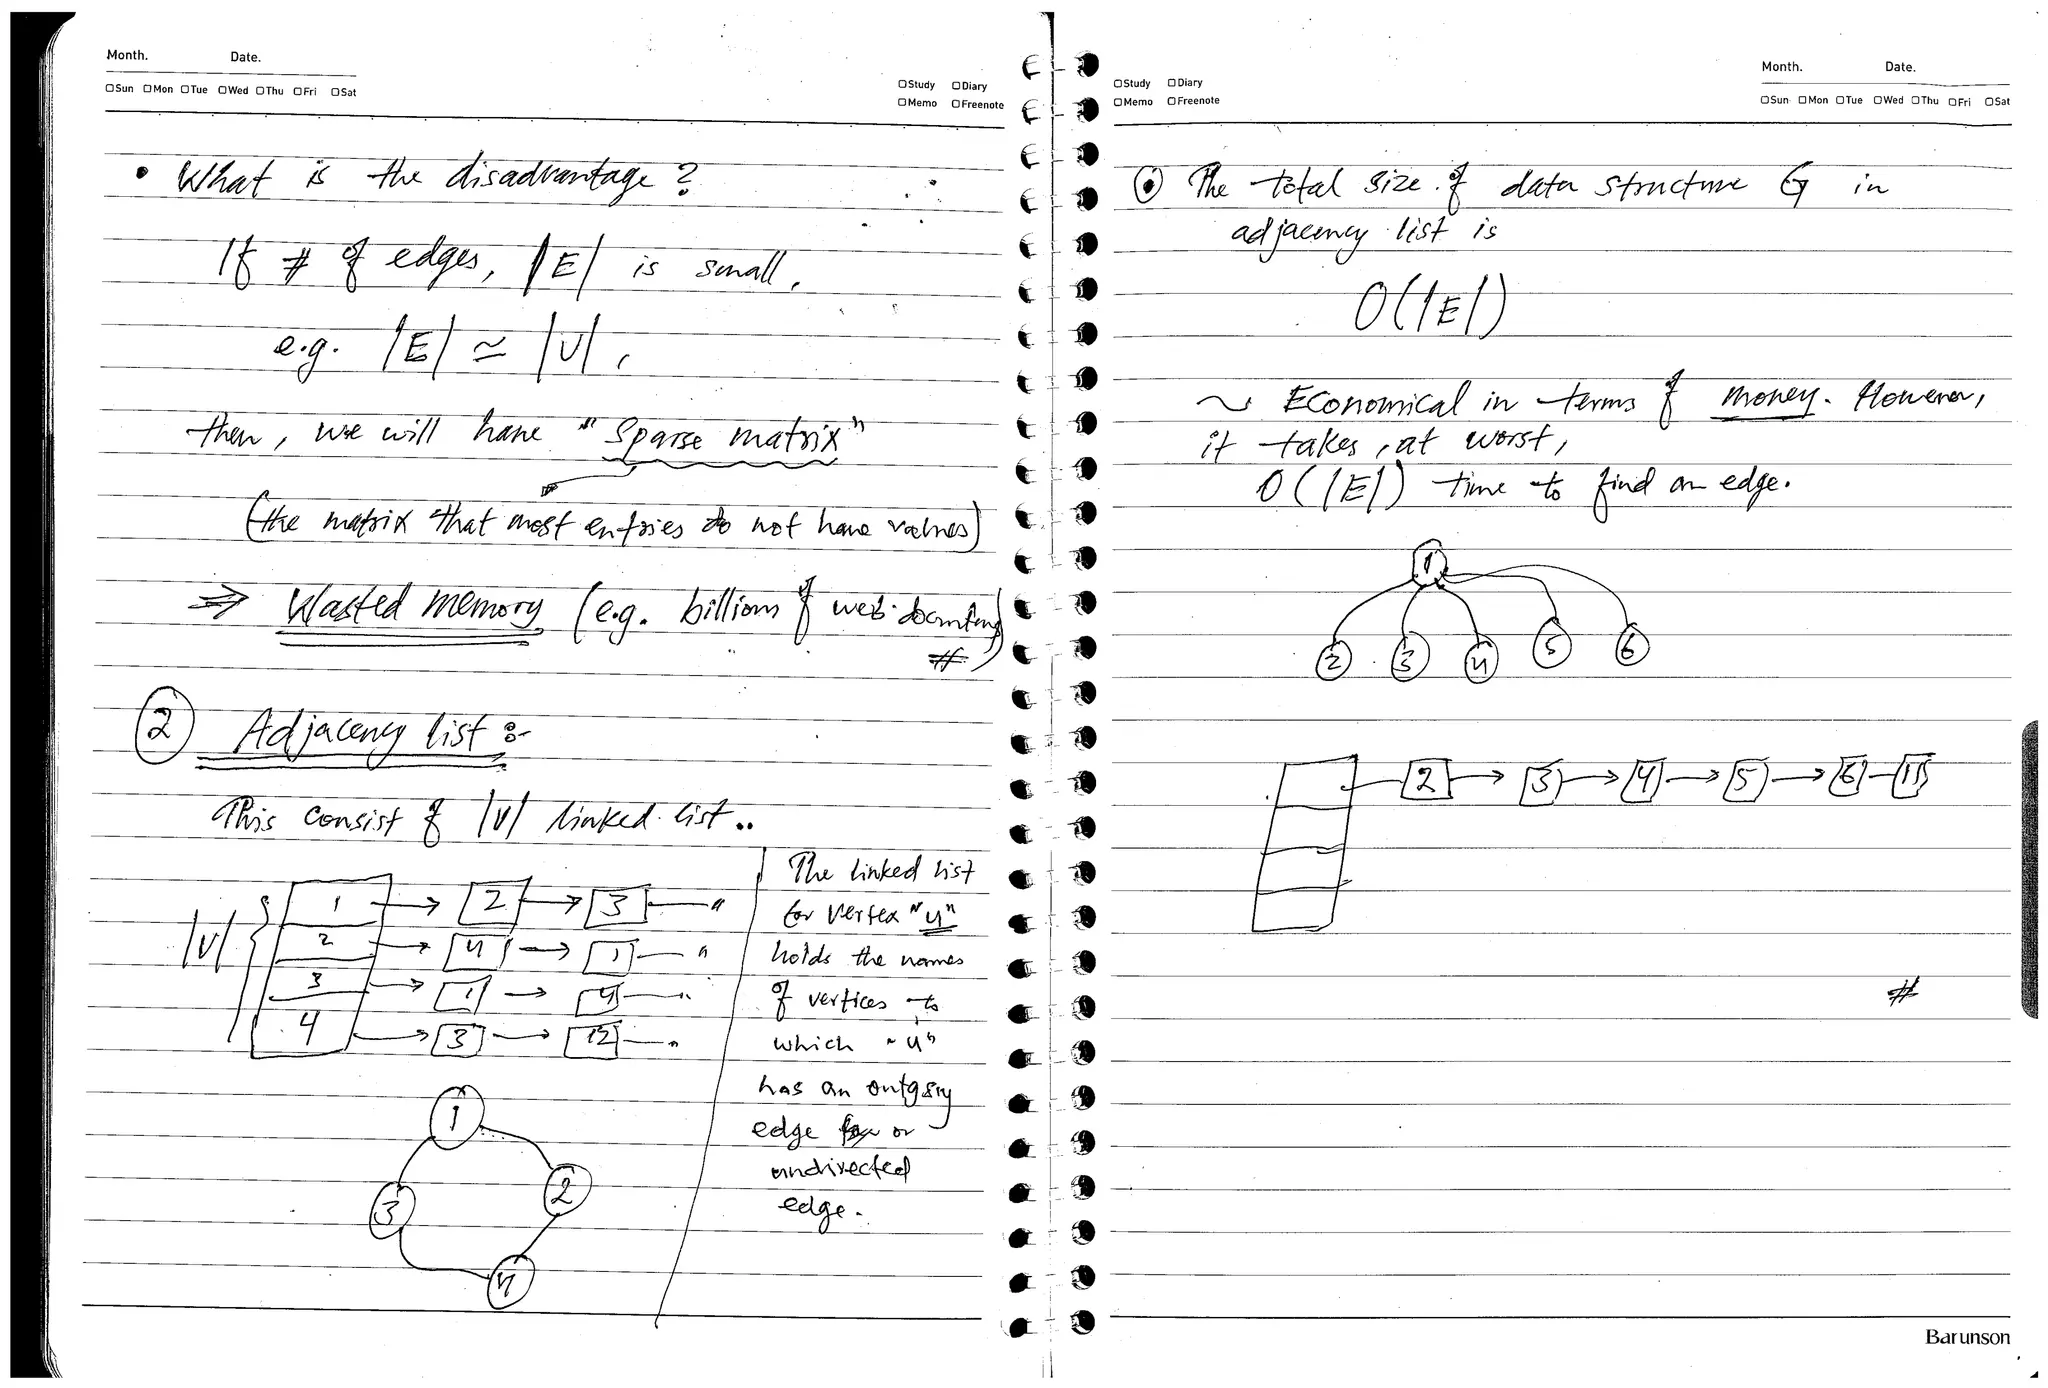 Month. Date.
☐Sun ☐Mon ☐Tue ☐Wed ☐Thu ☐Fri ☐Sat
☐Study ☐Diary
☐Memo ☐Freenote
• What is the disadvantage?
If # of edges, |E| is small,
e.g. |E| ≃ |V|,
then, we will have "Sparse matrix"
(the matrix that most entries do not have values)
⇒ Wasted memory (e.g. billions of web
#
② Adjacency list :-
This consist of |V| linked list..
|V|
1 → 2 → 3 — "
2 → 4 → 1 — "
3 → 1 → 4 — "
4 → 3 → 12 — "
The linked list
for vertex "u"
holds the names
of vertices to
which "u"
has an outgoing
edge or
undirected
edge.
1
3 2
4
☐Study ☐Diary
☐Memo ☐Freenote
Month. Date.
☐Sun ☐Mon ☐Tue ☐Wed ☐Thu ☐Fri ☐Sat
⊙ The total size of data structure G in
adjacency list is
O(|E|)
~ Economical in terms of money. However,
it takes, at worst,
O(|E|) time to find an edge.
1
2 3 4 5 6
2 → 3 → 4 → 5 → 6
#
Barunson